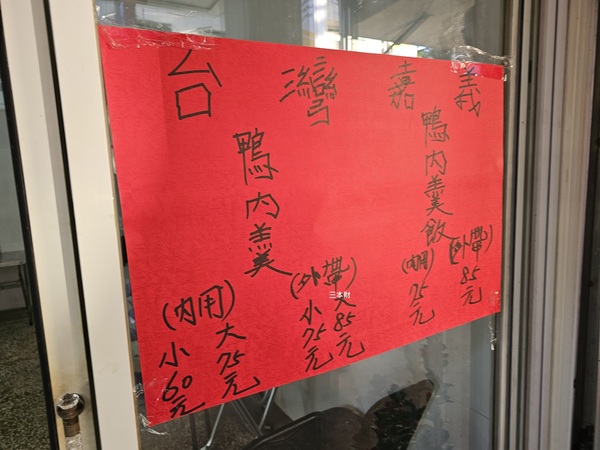 台灣嘉義
鴨內羹
(內用)
小60元
大75元
(外帶)
小75元
大85元
鴨內羹飯
(內用)
75元
(外帶)
85元
三本財